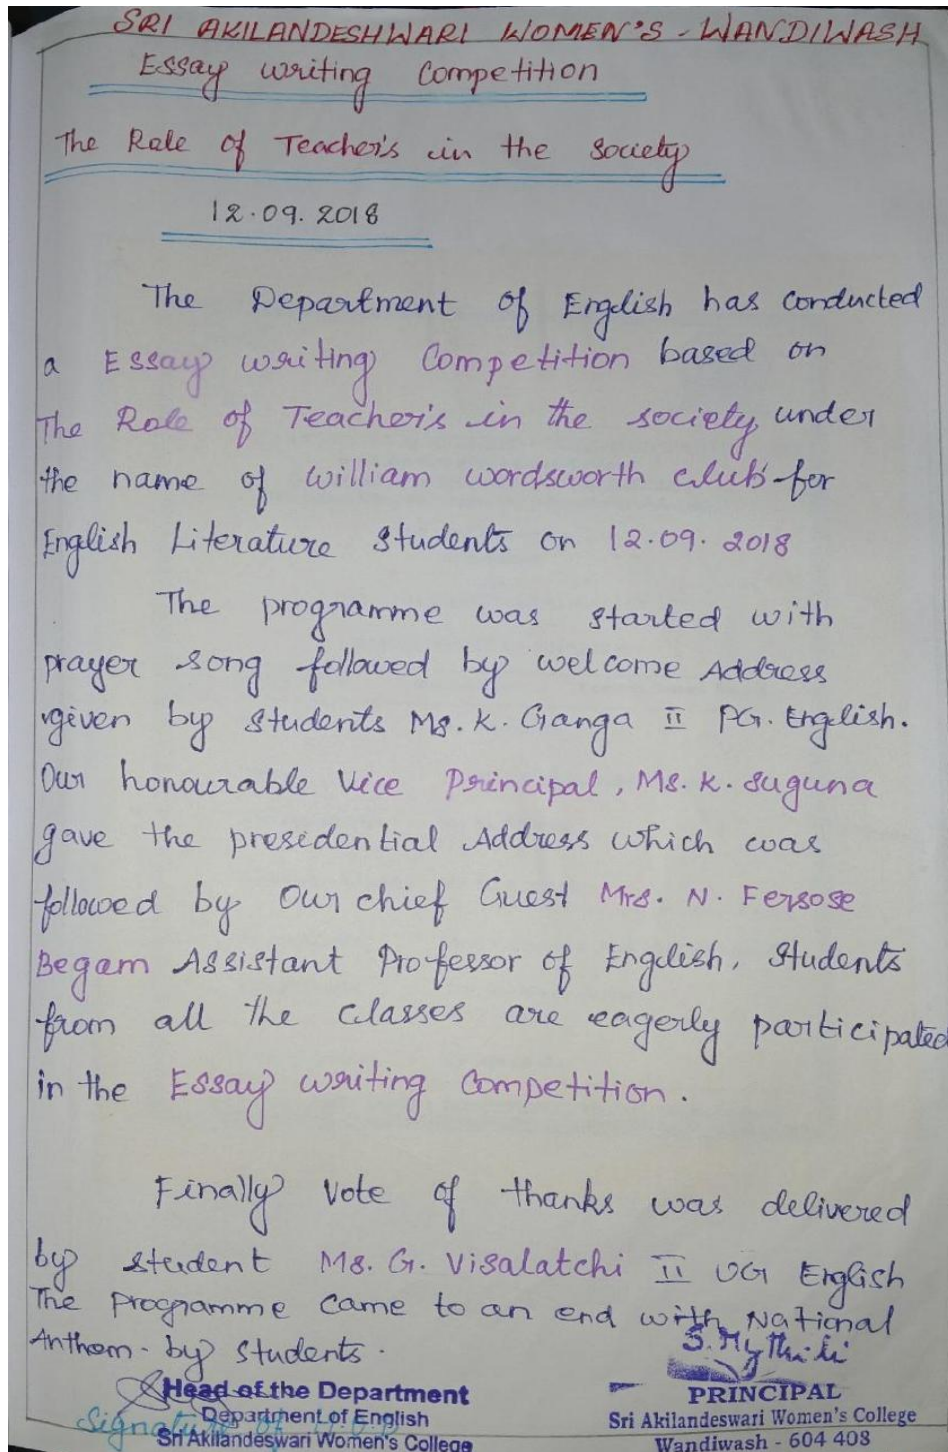 SRI AKILANDESHWARI WOMEN'S - WANDIWASH
Essay writing Competition
The Role of Teacher's in the society
12.09.2018
The Department of English has conducted
a Essay writing Competition based on
The Role of Teacher's in the society under
the name of William wordsworth club for
English Literature Students on 12.09.2018
The programme was started with
prayer song followed by welcome Address
given by Students Ms. K. Ganga II PG. English.
Our honourable Vice Principal, Ms. K. Suguna
gave the presidential Address which was
followed by Our chief Guest Mrs. N. Fersose
Begam Assistant Professor of English, Students
from all the classes are eagerly participated
in the Essay writing Competition.
Finally Vote of thanks was delivered
by student Ms. G. Visalatchi II UG English
The Programme came to an end with National
Anthem - by Students.
S. Mythili
Head of the Department
PRINCIPAL
Department of English
Sri Akilandeswari Women's College
Signature of
Sri Akilandeswari Women's College
Wandiwash - 604 408